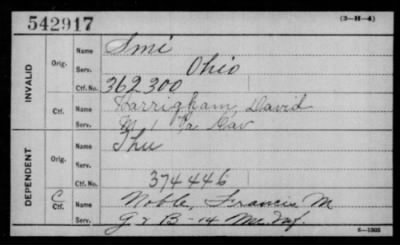 542917
(3-H-4)
INVALID
Orig.
Name Smi
Serv. Ohio
Ctf. No. 362300
Ctf.
Name Harrigham, David
Serv. M 1 Va Cav
DEPENDENT
Orig.
Name Thu
Serv.
Ctf. No. 374446
C
Ctf.
Name Noble, Francis M
Serv. G & B-14 Me. Inf
6—1903